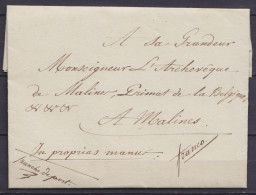 A Sa Grandeur
Monseigneur L'Archevêque
de Malines, Primat de la Belgique
&c &c &c
A Malines
In proprias manus
franco
franche de port